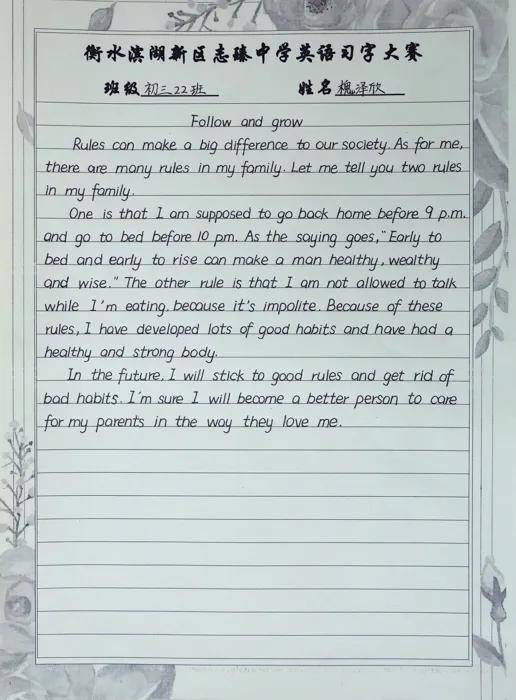 衡水滨湖新区志臻中学英语习字大赛
班级 初三22班 姓名 槐泽欣
Follow and grow
Rules can make a big difference to our society. As for me,
there are many rules in my family. Let me tell you two rules
in my family.
One is that I am supposed to go back home before 9 p.m.
and go to bed before 10 pm. As the saying goes, "Early to
bed and early to rise can make a man healthy, wealthy
and wise." The other rule is that I am not allowed to talk
while I'm eating, because it's impolite. Because of these
rules, I have developed lots of good habits and have had a
healthy and strong body.
In the future, I will stick to good rules and get rid of
bad habits. I'm sure I will become a better person to care
for my parents in the way they love me.